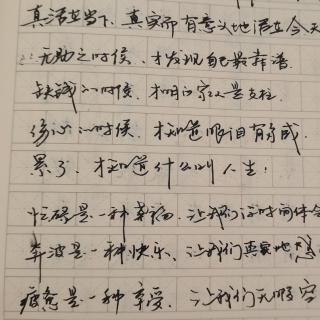 真活在当下、真实而有意义地活在今天
无助之时候、才发现自己最靠谱
缺钱的时候、才明白家人是支柱.
伤心的时候、才知道眼泪有多咸.
累了、才知道什么叫人生!
忙碌是一种幸福、让我们没时间体会
奔波是一种快乐、让我们真实地感
疲惫是一种享受、让我们无暇空